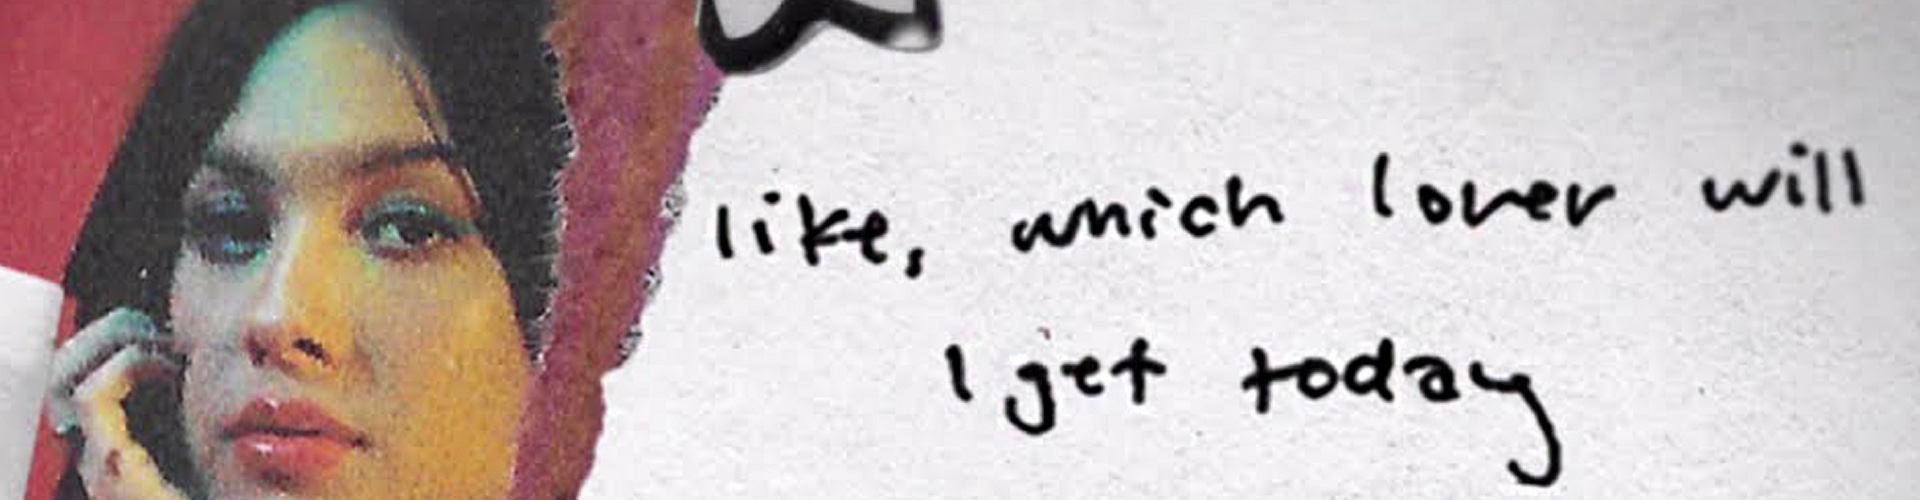 like, which lover will
I get today